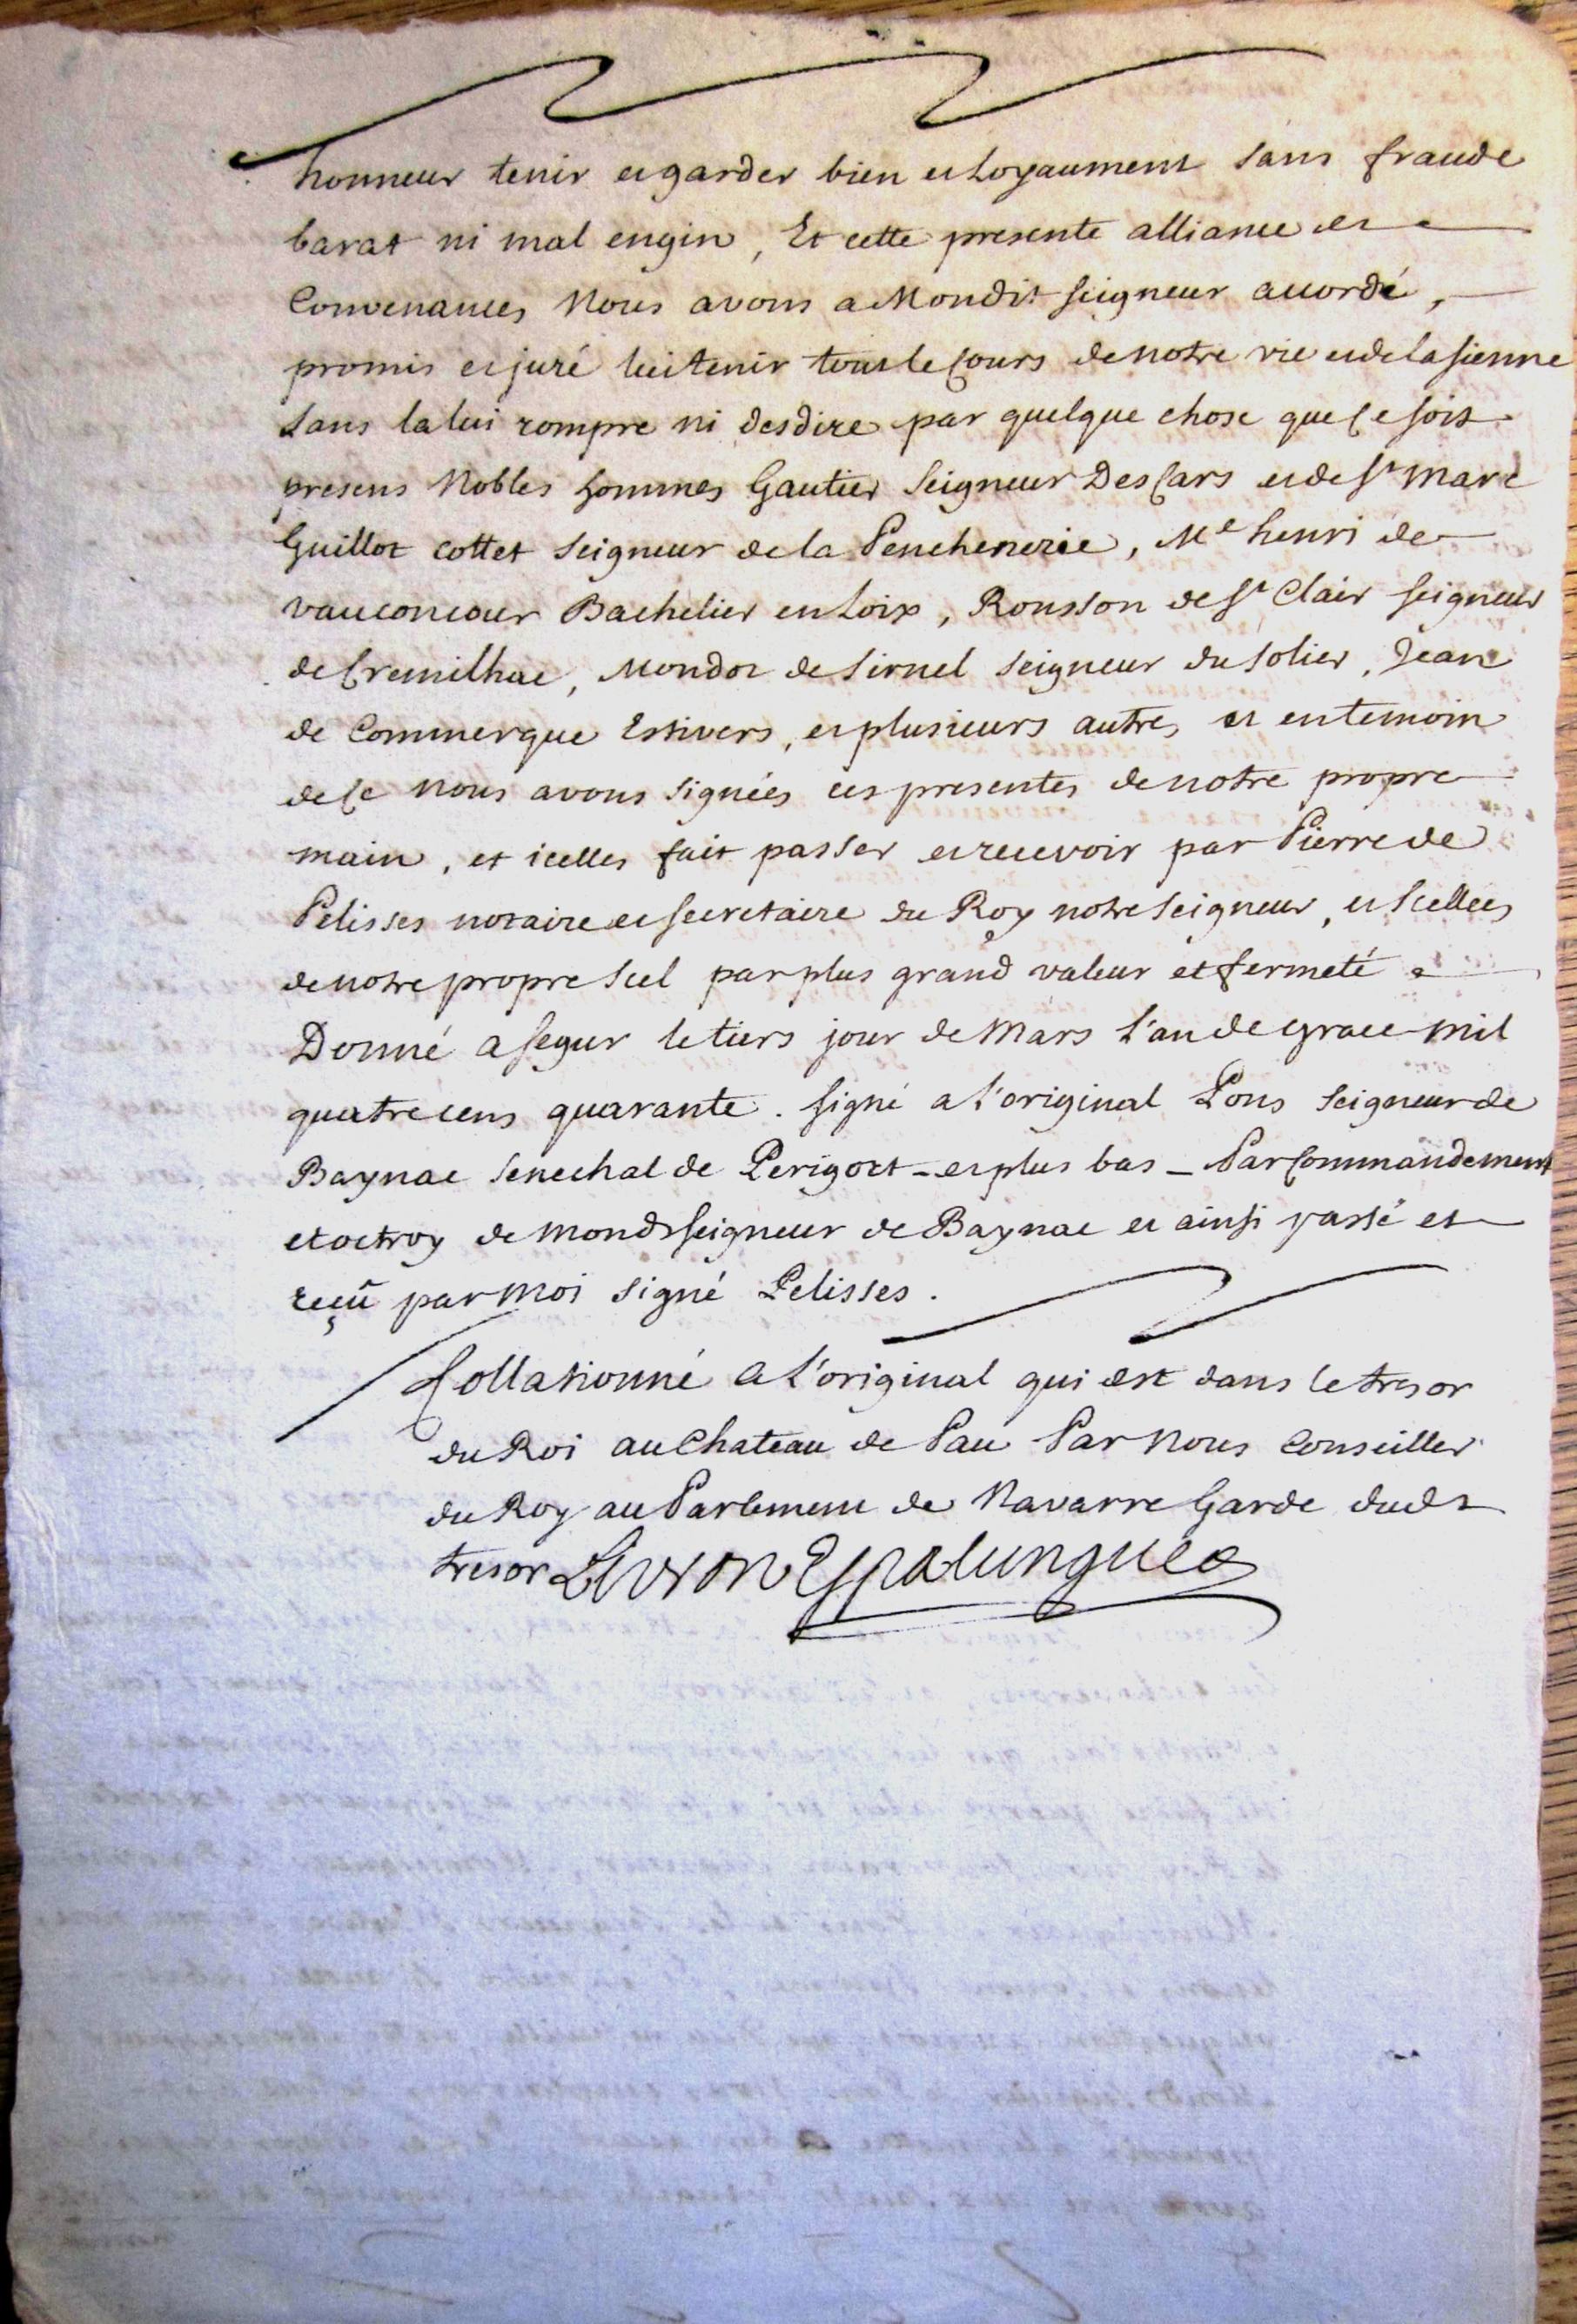 honneur tenir et garder bien et Loyaument sans fraude
barat ni mal engin, Et cette presente alliance et
Convenances Nous avons a Mondit seigneur accordé,
promis et juré lui tenir tout le Cours de notre vie et de la sienne
sans la lui rompre ni desdire par quelque chose que Ce soit
presens Nobles hommes Gautier Seigneur Des Cars et de St Marc
Guillot Cottet Seigneur de la Penchenerie, Me henri de
vauconcour Bachelier en Loix, Rousson de St Clair seigneur
de Cremilhac, Mondot de Sirnel Seigneur du Solier, Jean
de Commerque Estivers, et plusieurs autres, et en temoin
de Ce nous avons signées ces presentes de notre propre
main, et icelles fait passer et recevoir par Pierre de
Pelisses notaire et secretaire du Roy notre Seigneur, et Scellées
de notre propre Scel par plus grand valeur et fermeté
Donné a segur le tiers jour de Mars l'an de grace mil
quatre cens quarante. signé a l'original Pons Seigneur de
Baynac Senechal de Perigort - et plus bas - Par Commandement
et octroy de mondt seigneur de Baynac et ainsi passé et
reçû par moi signé Pelisses.
Collationné a l'original qui est dans le tresor
du Roi au Chateau de Pau Par Nous Conseiller
du Roy au Parlement de Navarre Garde dudt
tresor Livron Espalungue